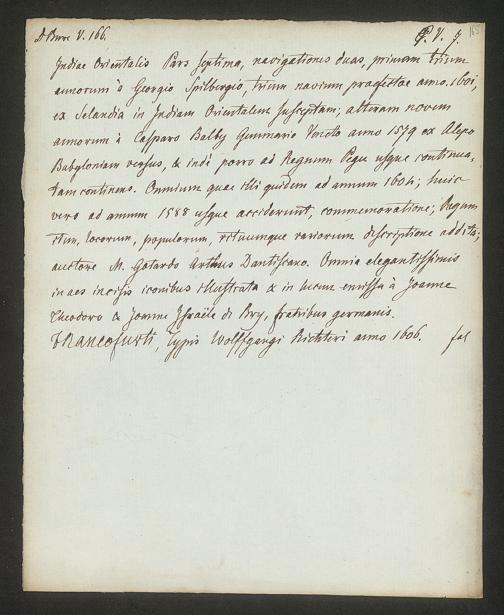 D Bure V. 166.
P. V. 7.
Indiae Orientalis Pars septima, navigationes duas, primam trium
annorum à Georgio Spilbergio, trium navium praefecto anno. 1601,
ex Selandia in Indiam Orientalem susceptam; alteram novem
annorum à Casparo Balby Gemmario Veneto anno 1579 ex Alepo
Babyloniam versus, & inde porro ad Regnum Pegu usque continua,
tam continens. Omnium quae illi quidem ad annum 1604; huic
vero ad annum 1588 usque acciderunt, commemoratione; Regum
item, locorum, populorum, rituumque variorum descriptione addita;
auctore M. Gotardo Arthus Dantiscano. Omnia elegantissimis
in aes incisis iconibus illustrata & in lucem emissa à Joanne
Theodoro & Joanne Israële de Bry, fratribus germanis.
Francofurti, Typis Wolffgangi Richteri anno 1606. fol